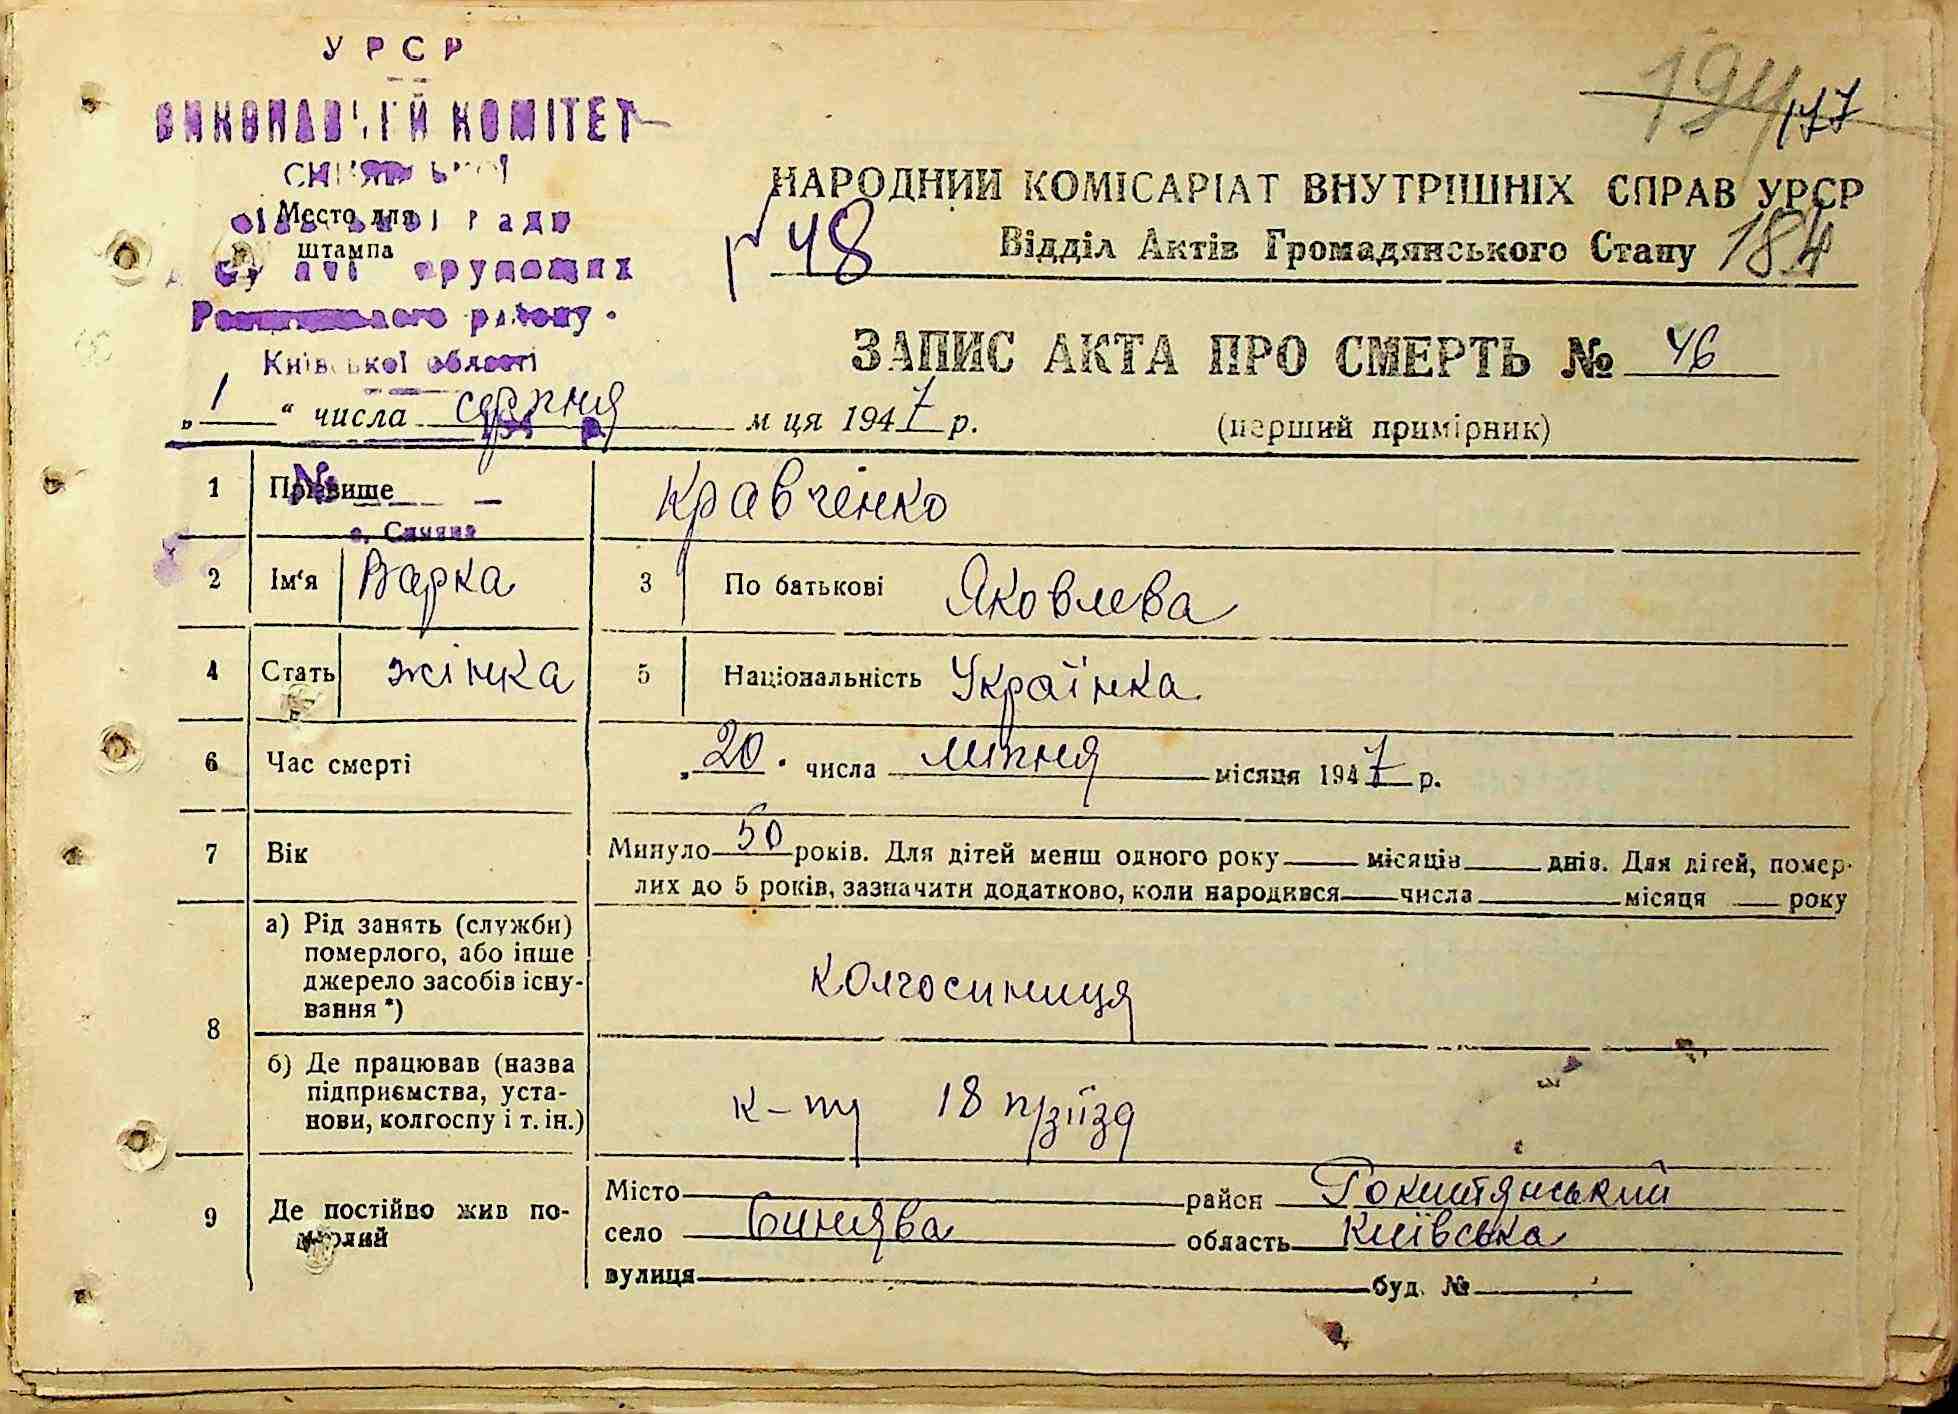 УРСР
ВИКОНАВЧИЙ КОМІТЕТ
Место для
штампа
ради
депутатів трудящих
району
Київської області
194 177
НАРОДНИЙ КОМІСАРІАТ ВНУТРІШНІХ СПРАВ УРСР
48 Відділ Актів Громадянського Стану 184
ЗАПИС АКТА ПРО СМЕРТЬ № 46
„1“ числа серпня м ця 1947 р.
(перший примірник)
1 Прізвище Кравченко
№
с. Синява
2 Ім'я Варка 3 По батькові Яковлева
4 Стать жінка 5 Національність Українка
6 Час смерті „20. числа липня місяця 1947 р.
7 Вік Минуло 50 років. Для дітей менш одного року місяців днів. Для дітей, помер-
лих до 5 років, зазначити додатково, коли народився числа місяця року
8 а) Рід занять (служби)
померлого, або інше
джерело засобів існу-
вання *)
колгоспниця
б) Де працював (назва
підприємства, уста-
нови, колгоспу і т. ін.)
к-пу 18 п/зїізд
9 Де постійно жив по-
мерлий
Місто район Рокитянський
село Синява область Київська
вулиця буд. №